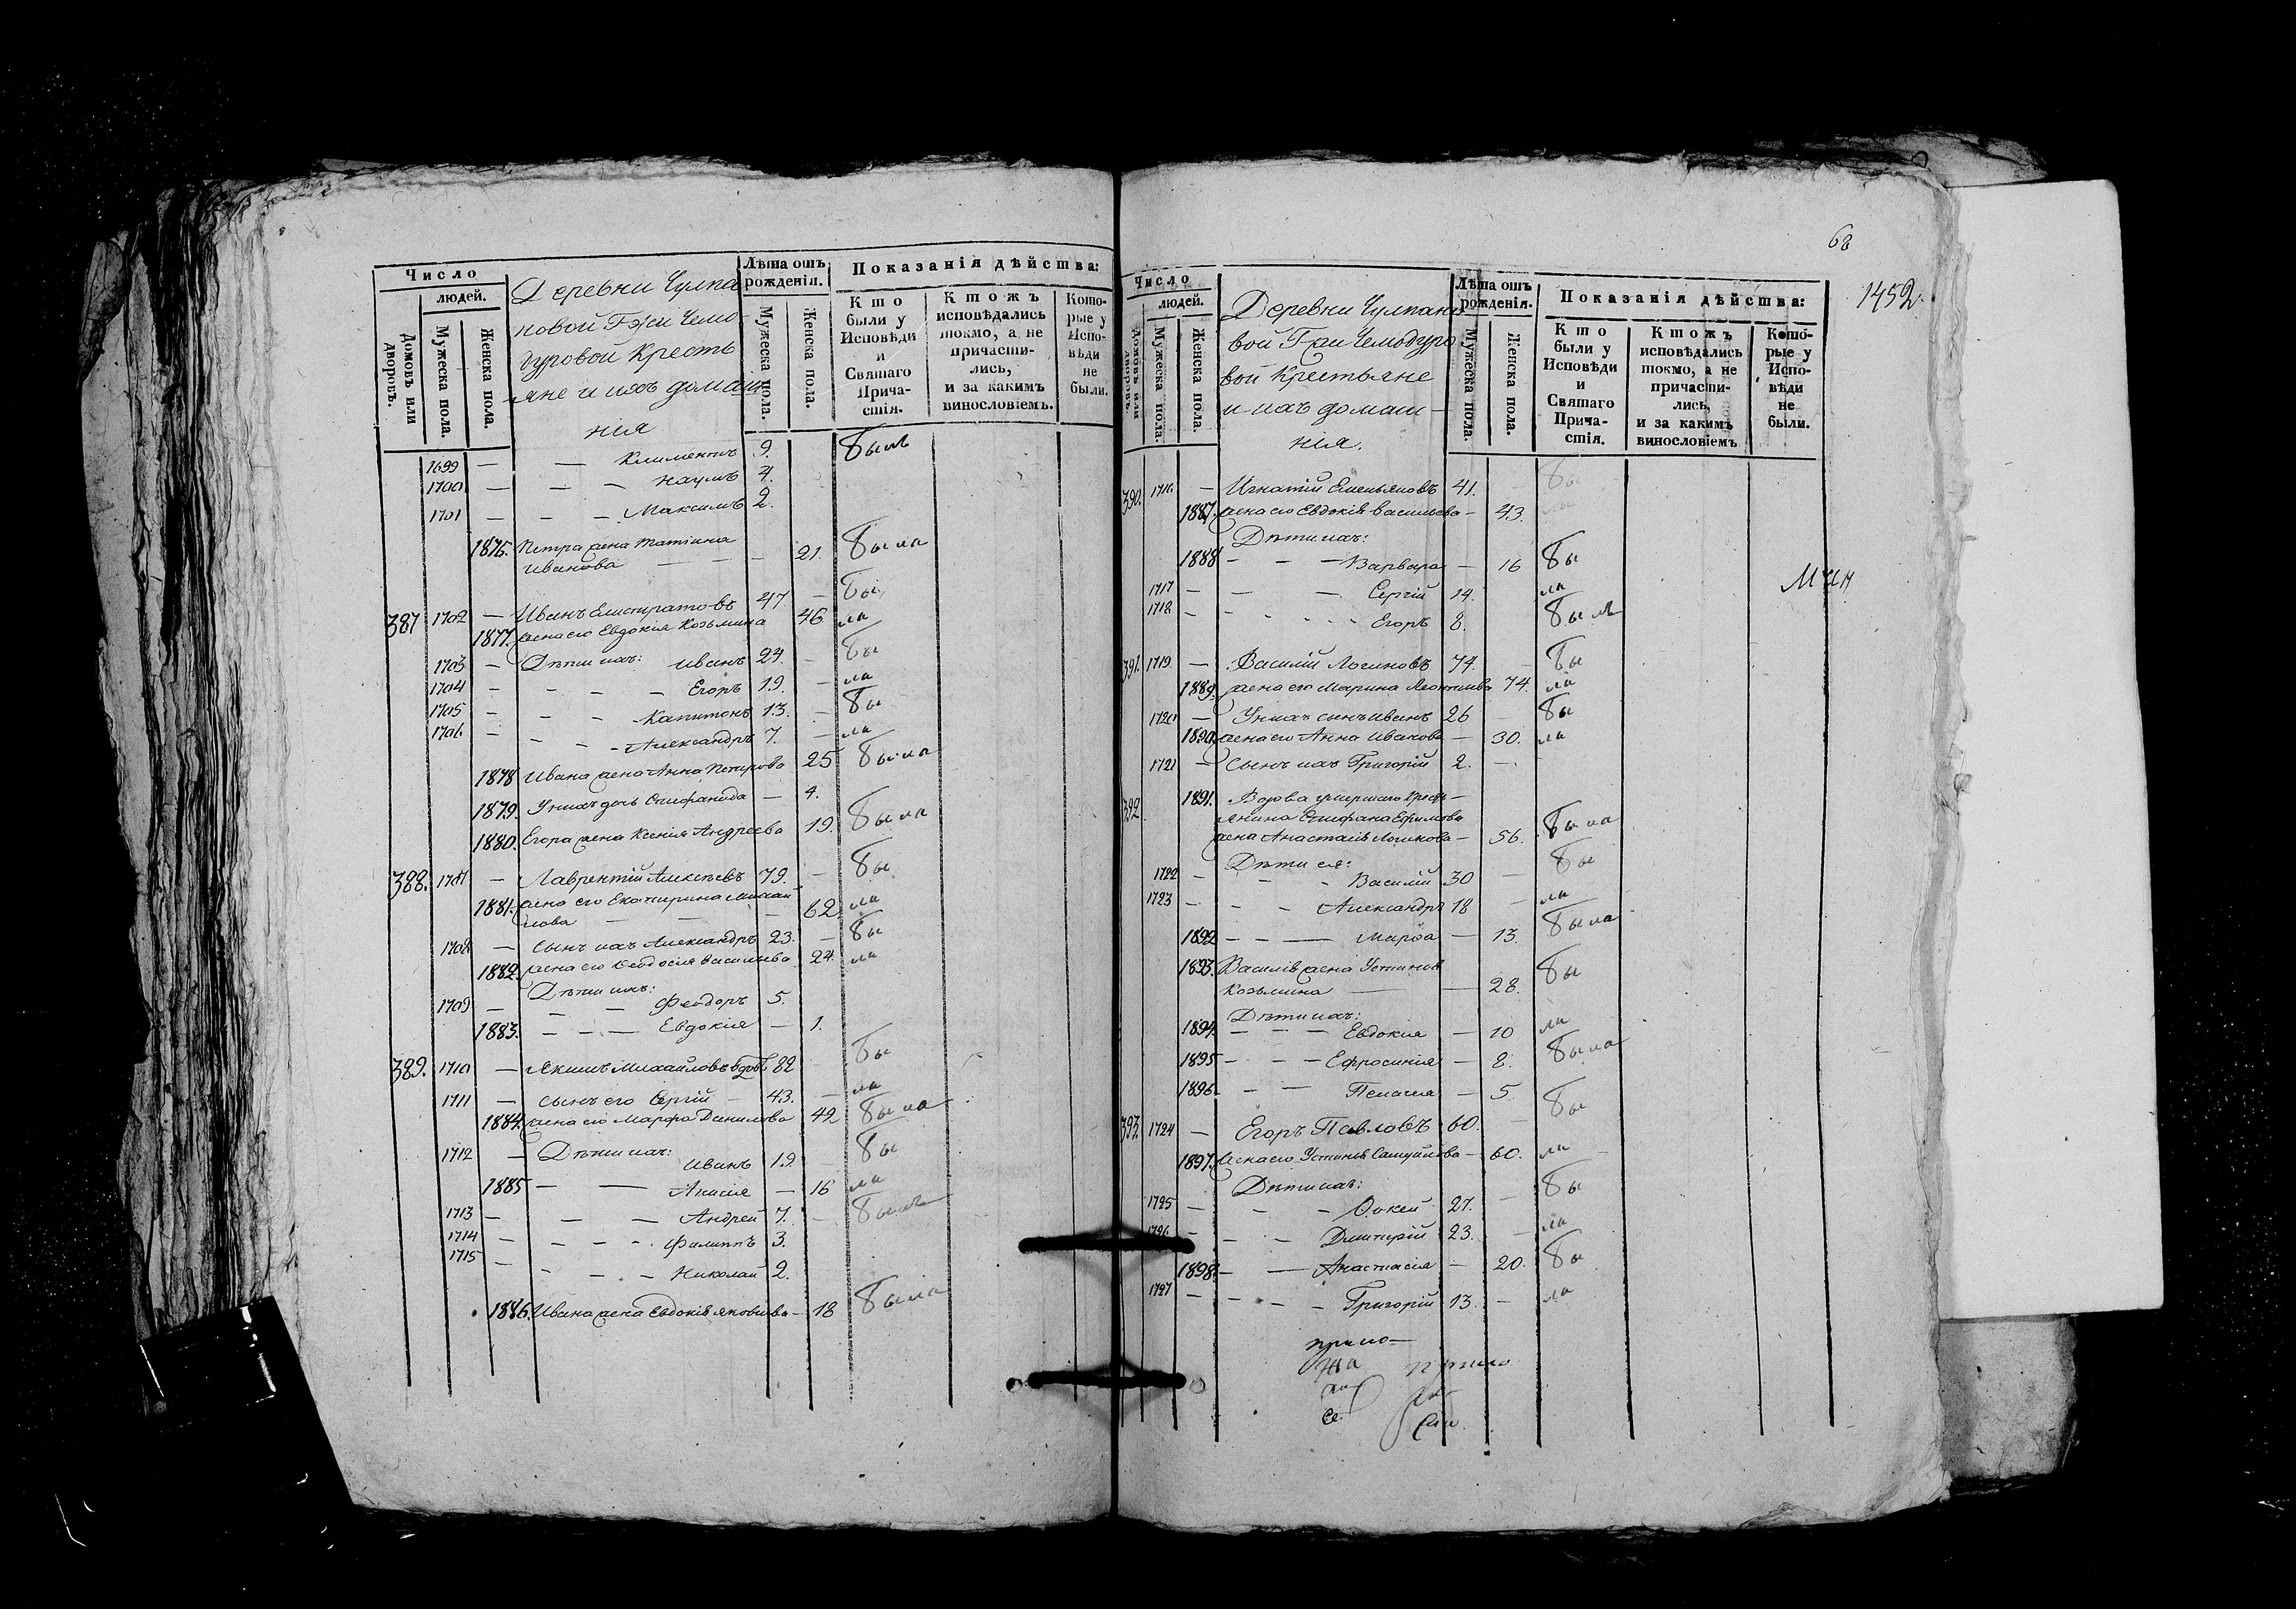 Число
людей.
Домовъ или дворовъ.
Мужеска пола.
Женска пола.
Деревни Чулпа
новой Гжи Чемо-
дуровой Кресть
яне и ихъ домаш
нія
Лѣта отъ рожденія.
Мужеска пола.
Женска пола.
Показанія дѣйства:
Кто были у Исповѣди и Святаго Причастія.
Ктожъ исповѣдались токмо, а не причастились, и за какимъ винословіемъ.
Которые у Исповѣди не были.
1699 — — Климентъ 9. былъ
1700 — — — Наумъ 4.
1701 — — — Максимъ 2.
1876. Петра жена Татіана
Иванова — — — 21. была
387 1702 — Иванъ Елистратовъ 47 — бы
1877. жена его Евдокія Козьмина 46 ли
1703 — Дѣти ихъ: Иванъ 24. — бы
1704 — — — — Егоръ 19. — ли
1705 — — — Капитонъ 13. — бы
1706 — — — — Александръ 7. — ли
1878 Ивана жена Анна Петрова 25 была
1879. У нихъ дочь Епифанида — 4.
1880. Егора жена Ксенія Андреева 19. была
388. 1707 — Лаврентій Алексѣевъ 79. — бы
1881. жена его Екатирина Михай
лова — — — 62 ли
1708 — Сынъ ихъ Александръ 23. — бы
1882. жена его Феодосія Васильева 24 ли
Дѣти ихъ:
1709 — — — Феодоръ 5.
1883. — — — Евдокія — 1.
389. 1710 — Якимъ Михайловъ вдовъ 82 бы
1711 — Сынъ его Сергій — 43. — ли
1884. жена его Марфа Данилова 42 была
1712 — Дѣти ихъ: Иванъ 19. бы
1885 — — Анисія — 16 ли
1713 — — — Андрей 7. — былъ
1714 — — — — Филиппъ 3.
1715 — — — — Николай 2.
1886. Ивана жена Евдокія Яковлева — 18 была
68
1452.
Число
людей.
Домовъ или дворовъ.
Мужеска пола.
Женска пола.
Деревни Чулпано
вой Гжи Чемодуро
вой Крестьяне
и ихъ домаш—
нія.
Лѣта отъ рожденія.
Мужеска пола.
Женска пола.
Показанія дѣйства:
Кто были у Исповѣди и Святаго Причастія.
Ктожъ исповѣдались токмо, а не причастились, и за какимъ винословіемъ
Которые у Исповѣди не были.
390. 1716 — Игнатій Емельяновъ 41. — бы
1887. жена его Евдокія Васильева — 43. ли
Дѣти ихъ:
1888 — — — Варвара — 16 бы
1717 — — — Сергій 14. ли
1718 — — — — Егоръ 8. былъ
391. 1719 — Василій Логиновъ 74. — бы
1889. жена его Марина Леонтьева 74. ли
1720 — У нихъ сынъ Иванъ 26 — бы
1890. жена его Анна Иванова — 30. ли
1721 — Сынъ ихъ Григорій 2. —
392. 1891. Вдова умершаго Кресть—
янина Епифана Ефимова
жена Анастасія Логинова — 56. была
Дѣти ея:
1722 — — — Василій 30 — бы
1723 — — — Александръ 18 — ли
1892 — — — Марѳа — 13. была
1893. Василія жена Устинья
Козьмина — — 28. бы
Дѣти ихъ:
1894. — — — Евдокія — 10 ли
1895 — — — Ефросинія — 8. была
1896 — — Пелагія — 5.
393. 1724 — Егоръ Павловъ 60. — бы
1897. жена его Устинья Самуйлова — 60. ли
Дѣти ихъ:
1725 — — — Фокей 27. — бы
1726 — — — Дмитрій 23. — ли
1898. — — Анастасія — 20. бы
1727 — — — — Григорій 13. — ли